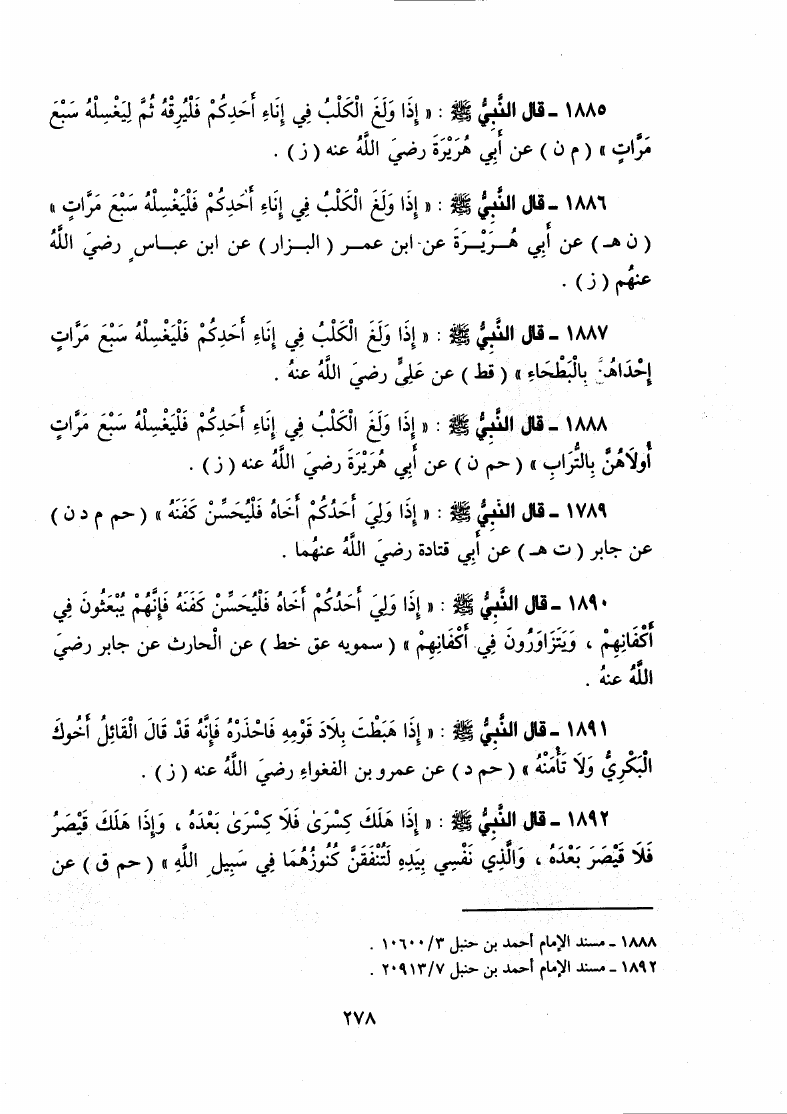 ١٨٨٥ ـ قال النَّبِيُّ ﷺ : « إِذَا وَلَغَ الْكَلْبُ فِي إِنَاءِ أَحَدِكُمْ فَلْيُرِقْهُ ثُمَّ لِيَغْسِلْهُ سَبْعَ
مَرَّاتٍ » ( م ن ) عن أَبِي هُرَيْرَةَ رضيَ اللَّهُ عنه ( ز ) .
١٨٨٦ ـ قال النَّبِيُّ ﷺ : « إِذَا وَلَغَ الْكَلْبُ فِي إِنَاءِ أَحَدِكُمْ فَلْيَغْسِلْهُ سَبْعَ مَرَّاتٍ »
( ن هـ ) عن أَبِي هُـرَيْـرَةَ عن ابن عمـر ( البـزار ) عن ابن عبـاس رضيَ اللَّهُ
عنهُم ( ز ) .
١٨٨٧ ـ قال النَّبِيُّ ﷺ : « إِذَا وَلَغَ الْكَلْبُ فِي إِنَاءِ أَحَدِكُمْ فَلْيَغْسِلْهُ سَبْعَ مَرَّاتٍ
إِحْدَاهُنَّ بِالْبَطْحَاءِ » ( قط ) عن عَلِيٍّ رضيَ اللَّهُ عنهُ .
١٨٨٨ ـ قال النَّبِيُّ ﷺ : « إِذَا وَلَغَ الْكَلْبُ فِي إِنَاءِ أَحَدِكُمْ فَلْيَغْسِلْهُ سَبْعَ مَرَّاتٍ
أُولاَهُنَّ بِالتُّرَابِ » ( حم ن ) عن أَبِي هُرَيْرَةَ رضيَ اللَّهُ عنه ( ز ) .
١٧٨٩ ـ قال النَّبِيُّ ﷺ : « إِذَا وَلِيَ أَحَدُكُمْ أَخَاهُ فَلْيُحَسِّنْ كَفَنَهُ » ( حم م د ن )
عن جابر ( ت هـ ) عن أَبي قتادة رضيَ اللَّهُ عنهُما .
١٨٩٠ ـ قال النَّبِيُّ ﷺ : « إِذَا وَلِيَ أَحَدُكُمْ أَخَاهُ فَلْيُحَسِّنْ كَفَنَهُ فَإِنَّهُمْ يُبْعَثُونَ فِي
أَكْفَانِهِمْ ، وَيَتَزَاوَرُونَ فِي أَكْفَانِهِمْ » ( سمويه عق خط ) عن الْحارث عن جابر رضيَ
اللَّهُ عنهُ .
١٨٩١ ـ قال النَّبِيُّ ﷺ : « إِذَا هَبَطْتَ بِلاَدَ قَوْمِهِ فَاحْذَرْهُ فَإِنَّهُ قَدْ قَالَ الْقَائِلُ أَخُوكَ
الْبَكْرِيُّ وَلاَ تَأْمَنْهُ » ( حم د ) عن عمرو بن الفغواءِ رضيَ اللَّهُ عنه ( ز ) .
١٨٩٢ ـ قال النَّبِيُّ ﷺ : « إِذَا هَلَكَ كِسْرَىٰ فَلاَ كِسْرَىٰ بَعْدَهُ ، وَإِذَا هَلَكَ قَيْصَرُ
فَلاَ قَيْصَرَ بَعْدَهُ ، وَالَّذِي نَفْسِي بِيَدِهِ لَتُنْفَقَنَّ كُنُوزُهُمَا فِي سَبِيلِ اللَّهِ » ( حم ق ) عن
١٨٨٨ ـ مسند الإمام أحمد بن حنبل ١٠٦٠٠/٣ .
١٨٩٢ ـ مسند الإمام أحمد بن حنبل ٢٠٩١٣/٧ .
٢٧٨